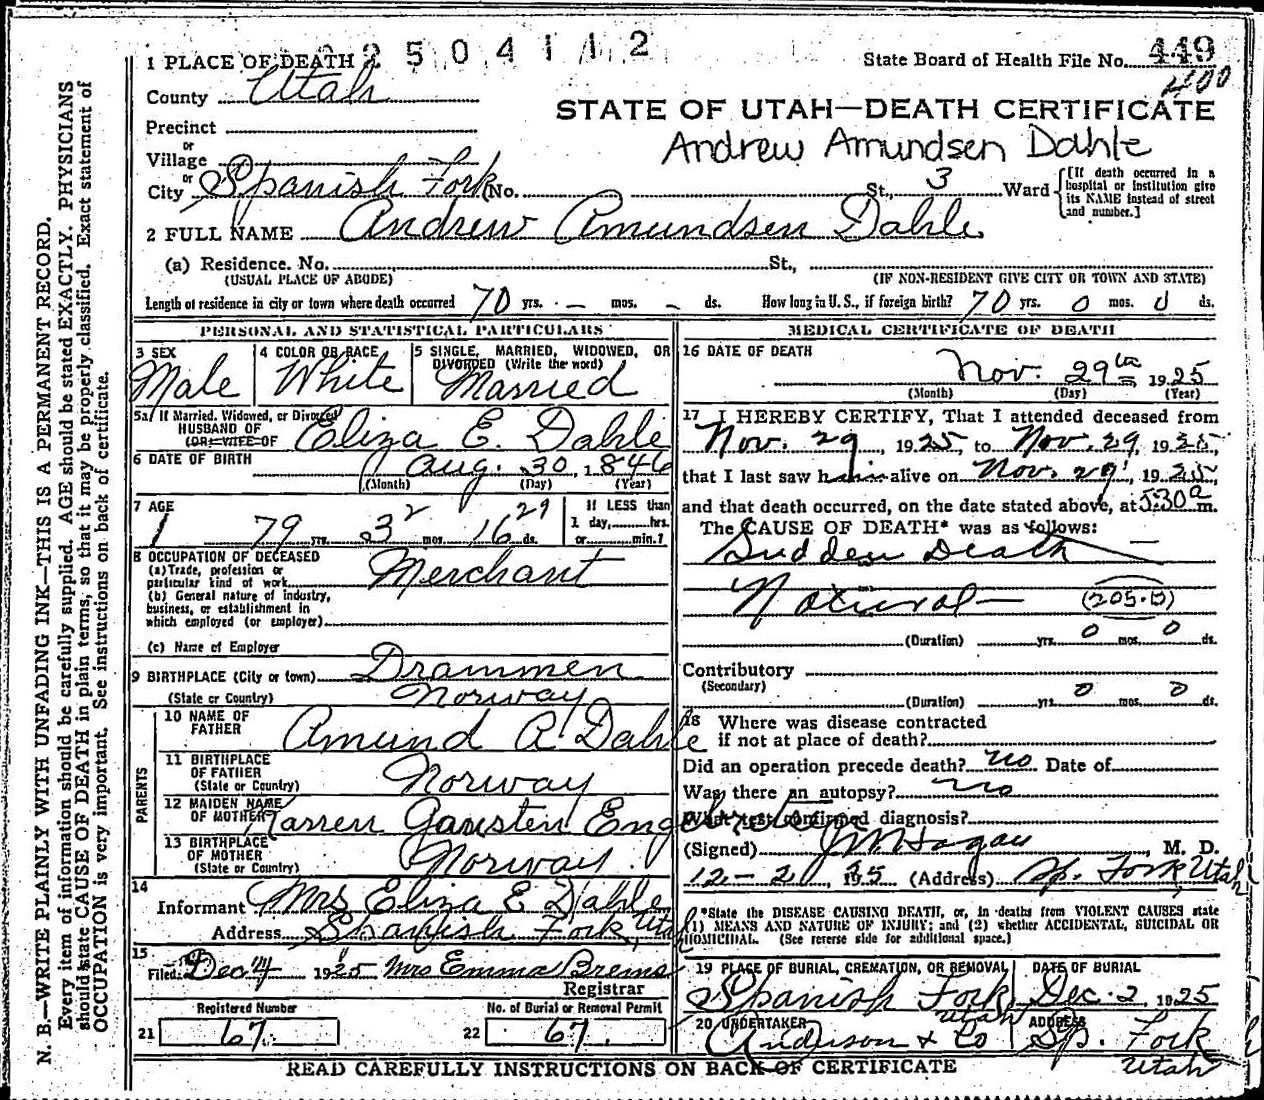 2504112
State Board of Health File No. 449
400
1 PLACE OF DEATH
County Utah
STATE OF UTAH—DEATH CERTIFICATE
Precinct
or
Village
Andrew Amundsen Dahle
or
City Spanish Fork (No. St., 3 Ward
[If death occurred in a hospital or institution give its NAME instead of street and number.]
2 FULL NAME Andrew Amundsen Dahle
(a) Residence. No. St.,
(USUAL PLACE OF ABODE) (IF NON-RESIDENT GIVE CITY OR TOWN AND STATE)
Length of residence in city or town where death occurred 70 yrs. - mos. - ds. How long in U. S., if foreign birth? 70 yrs. 0 mos. 0 ds.
PERSONAL AND STATISTICAL PARTICULARS
3 SEX
Male
4 COLOR OR RACE
White
5 SINGLE, MARRIED, WIDOWED, OR
DIVORCED (Write the word)
Married
5a If Married, Widowed, or Divorced
HUSBAND OF
(OR) WIFE OF Eliza E. Dahle
6 DATE OF BIRTH Aug. 30, 1846
(Month) (Day) (Year)
7 AGE
79 yrs. 3 2 mos. 16 29 ds.
If LESS than
1 day, hrs.
or min.?
8 OCCUPATION OF DECEASED
(a) Trade, profession or
particular kind of work Merchant
(b) General nature of industry,
business, or establishment in
which employed (or employer)
(c) Name of Employer
9 BIRTHPLACE (City or town) Drammen
(State or Country) Norway
PARENTS
10 NAME OF
FATHER Amund A Dahle
11 BIRTHPLACE
OF FATHER
(State or Country) Norway
12 MAIDEN NAME
OF MOTHER Karren Engebretsen
13 BIRTHPLACE
OF MOTHER
(State or Country) Norway.
14
Informant Mrs Eliza E Dahle
Address Spanish Fork, Utah
15
Filed Dec 4 1925 Mrs Emma Brems
Registrar
Registered Number
21 67.
No. of Burial or Removal Permit
22 67.
MEDICAL CERTIFICATE OF DEATH
16 DATE OF DEATH
Nov. 29th 1925
(Month) (Day) (Year)
17 I HEREBY CERTIFY, That I attended deceased from
Nov. 29, 1925, to Nov. 29, 1925,
that I last saw him alive on Nov. 29, 1925,
and that death occurred, on the date stated above, at 5:30 a m.
The CAUSE OF DEATH* was as follows:
Sudden Death
Natural (205-B)
(Duration) yrs. 0 mos. 0 ds.
Contributory
(Secondary)
(Duration) yrs. 0 mos. 0 ds.
18 Where was disease contracted
if not at place of death?
Did an operation precede death? no Date of
Was there an autopsy? no
What test confirmed diagnosis?
(Signed) J M Hagan, M. D.
12 - 2, 1925 (Address) Sp. Fork, Utah
*State the DISEASE CAUSING DEATH, or, in deaths from VIOLENT CAUSES state
(1) MEANS AND NATURE OF INJURY; and (2) whether ACCIDENTAL, SUICIDAL OR
HOMICIDAL. (See reverse side for additional space.)
19 PLACE OF BURIAL, CREMATION, OR REMOVAL
Spanish Fork
Utah
DATE OF BURIAL
Dec. 2 1925
20 UNDERTAKER
Anderson & Co
ADDRESS
Sp. Fork
Utah
READ CAREFULLY INSTRUCTIONS ON BACK OF CERTIFICATE
N. B.—WRITE PLAINLY WITH UNFADING INK—THIS IS A PERMANENT RECORD.
Every item of information should be carefully supplied. AGE should be stated EXACTLY. PHYSICIANS
should state CAUSE OF DEATH in plain terms, so that it may be properly classified. Exact statement of
OCCUPATION is very important. See instructions on back of certificate.